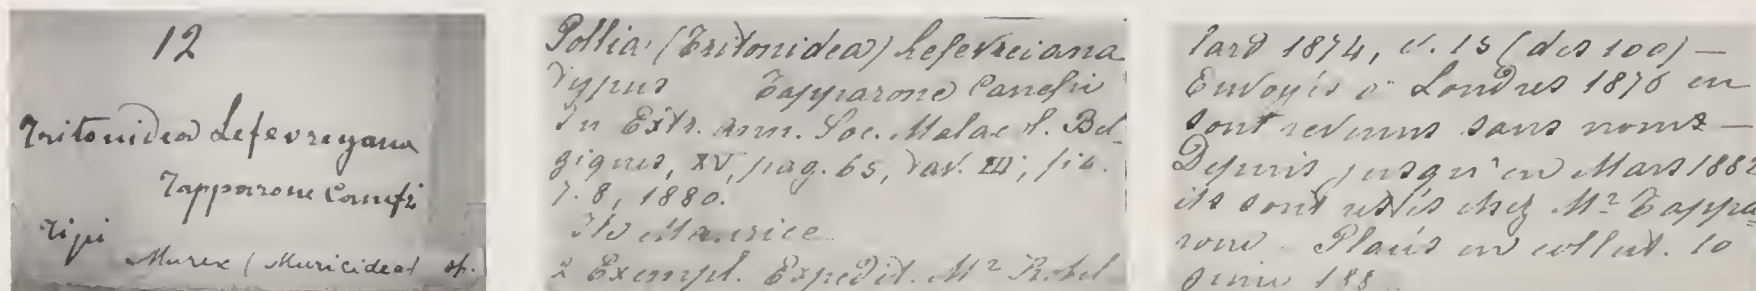 12
Tritonidea Lefevreyana
Tapparone Canefri
Tipi
Murex (Muricidea) sp.
Pollia (Tritonidea) Lefevreiana
Typus Tapparone Canefri
In Extr. Ann. Soc. Malac. d. Bel-
giques, XV, pag. 65, Tav. III, fig.
7.8, 1880.
Ile Maurice
2 Exempl. Expédit. Mr Robil
lard 1874, n. 15 (des 100) —
Envoyés à Londres 1876 en
sont revenus sans noms —
Depuis jusqu'en Mars 1882
ils sont restés chez Mr Tappa-
rone. Placés en collect. 10